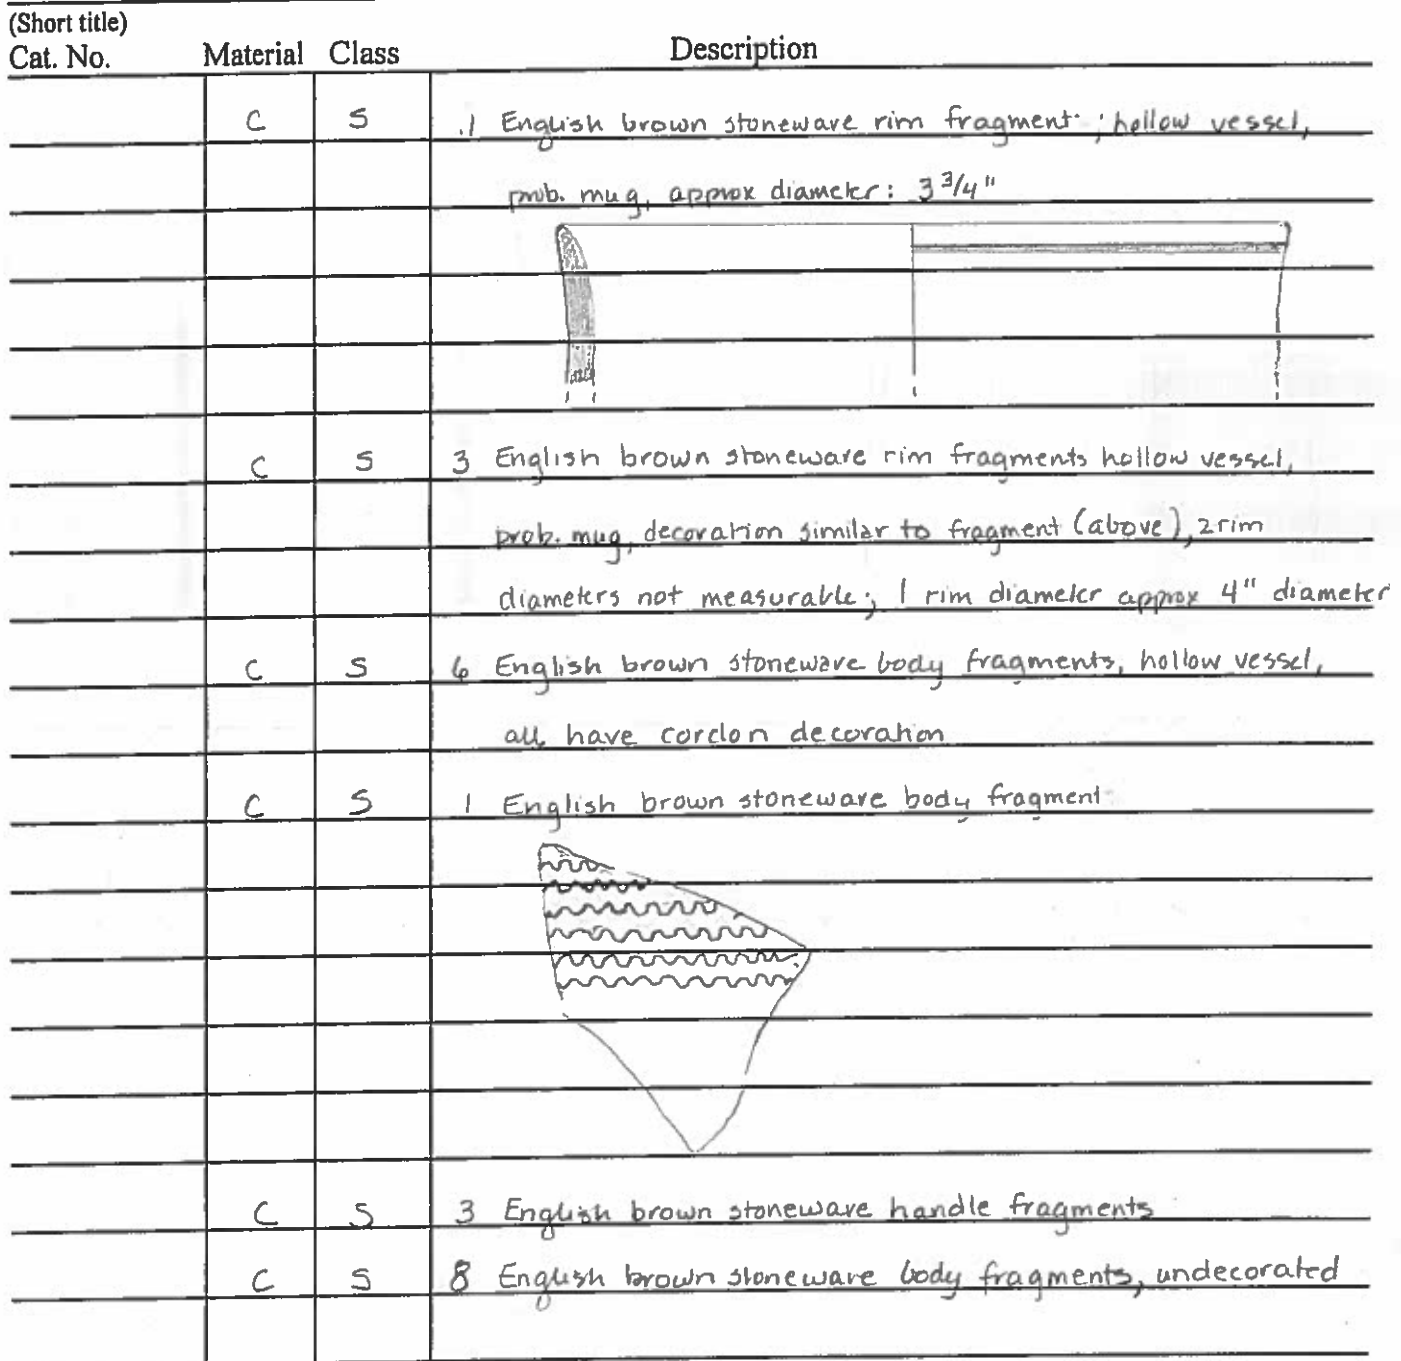 (Short title)
Cat. No. Material Class Description
C S .1 English brown stoneware rim fragment; hollow vessel,
prob. mug, approx diameter: 3 3/4"
C S 3 English brown stoneware rim fragments hollow vessel,
prob. mug, decoration similar to fragment (above), 2 rim
diameters not measurable; 1 rim diameter approx 4" diameter
C S 6 English brown stoneware body fragments, hollow vessel,
all have cordon decoration
C S 1 English brown stoneware body fragment
C S 3 English brown stoneware handle fragments
C S 8 English brown stoneware body fragments, undecorated